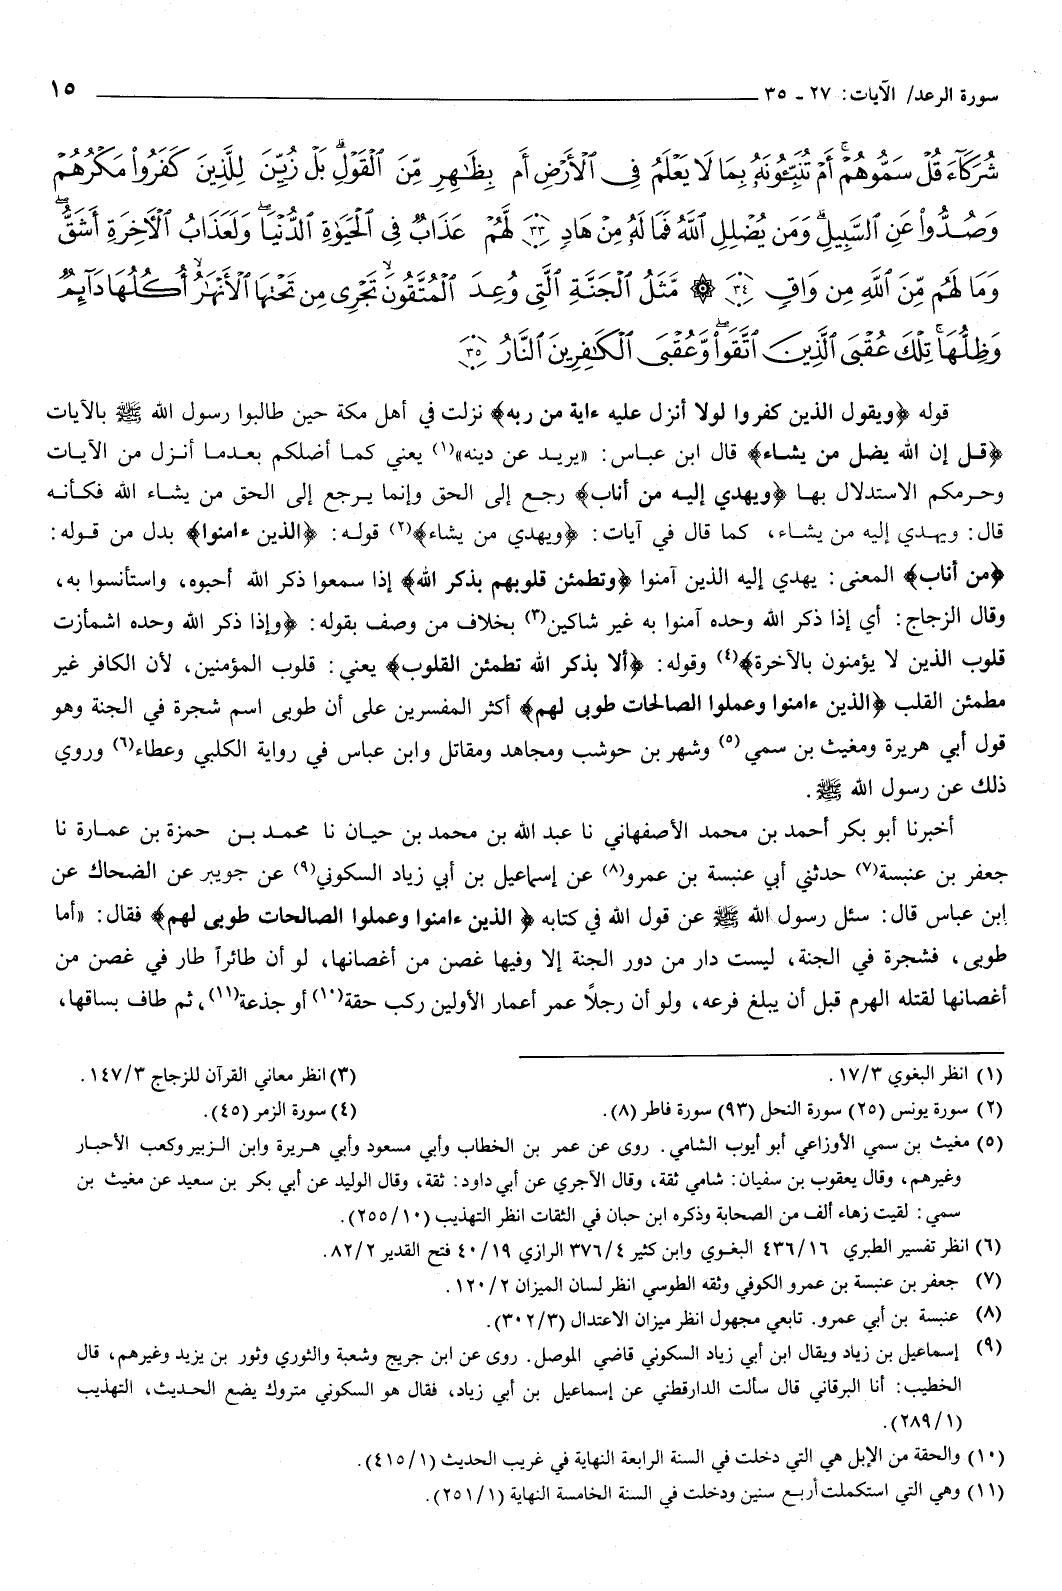 سورة الرعد/ الآيات: ٢٧ ـ ٣٥ ١٥
شُرَكَآءَ قُلْ سَمُّوهُمْۚ أَمْ تُنَبِّـُٔونَهُۥ بِمَا لَا يَعْلَمُ فِى ٱلْأَرْضِ أَم بِظَٰهِرٍ مِّنَ ٱلْقَوْلِۗ بَلْ زُيِّنَ لِلَّذِينَ كَفَرُوا۟ مَكْرُهُمْ
وَصُدُّوا۟ عَنِ ٱلسَّبِيلِۗ وَمَن يُضْلِلِ ٱللَّهُ فَمَا لَهُۥ مِنْ هَادٍ ٣٣ لَّهُمْ عَذَابٌ فِى ٱلْحَيَوٰةِ ٱلدُّنْيَاۖ وَلَعَذَابُ ٱلْـَٔاخِرَةِ أَشَقُّۖ
وَمَا لَهُم مِّنَ ٱللَّهِ مِن وَاقٍ ٣٤ ۞ مَّثَلُ ٱلْجَنَّةِ ٱلَّتِى وُعِدَ ٱلْمُتَّقُونَۙ تَجْرِى مِن تَحْتِهَا ٱلْأَنْهَٰرُۙ أُكُلُهَا دَآئِمٌ
وَظِلُّهَاۚ تِلْكَ عُقْبَى ٱلَّذِينَ ٱتَّقَوا۟ۖ وَّعُقْبَى ٱلْكَٰفِرِينَ ٱلنَّارُ ٣٥
قوله ﴿ويقول الذين كفروا لولا أنزل عليه ءاية من ربه﴾ نزلت في أهل مكة حين طالبوا رسول الله ﷺ بالآيات
﴿قـل إن الله يضل من يشـاء﴾ قال ابن عبـاس: «يريـد عن دينه»(١) يعني كمـا أضلكم بعدمـا أنـزل من الآيـات
وحـرمكم الاستدلال بهـا ﴿ويهدي إليـه من أناب﴾ رجـع إلى الحق وإنما يـرجع إلى الحق من يشـاء الله فكـأنـه
قال: ويهـدي إليه من يشـاء، كما قال في آيات: ﴿ويهدي من يشاء﴾(٢) قولـه: ﴿الذين ءامنوا﴾ بدل من قـوله:
﴿من أناب﴾ المعنى: يهدي إليه الذين آمنوا ﴿وتطمئن قلوبهم بذكر الله﴾ إذا سمعوا ذكر الله أحبوه، واستأنسوا به،
وقال الزجاج: أي إذا ذكر الله وحده آمنوا به غير شاكين(٣) بخلاف من وصف بقوله: ﴿وإذا ذكر الله وحده اشمأزت
قلوب الذين لا يؤمنون بالآخرة﴾(٤) وقوله: ﴿ألا بذكر الله تطمئن القلوب﴾ يعني: قلوب المؤمنين، لأن الكافر غير
مطمئن القلب ﴿الذين ءامنوا وعملوا الصالحات طوبى لهم﴾ أكثر المفسرين على أن طوبى اسم شجرة في الجنة وهو
قول أبي هريرة ومغيث بن سمي(٥) وشهر بن حوشب ومجاهد ومقاتل وابن عباس في رواية الكلبي وعطاء(٦) وروي
ذلك عن رسول الله ﷺ.
أخبرنا أبو بكر أحمد بن محمد الأصفهاني نا عبد الله بن محمد بن حيـان نا محمـد بـن حمزة بن عمـارة نا
جعفر بن عنبسة(٧) حدثني أبي عنبسة بن عمرو(٨) عن إسماعيل بن أبي زياد السكوني(٩) عن جويبر عن الضحاك عن
إبن عباس قال: سئل رسول الله ﷺ عن قول الله في كتابه ﴿ الذين ءامنوا وعملوا الصالحات طوبى لهم﴾ فقال: «أما
طوبى، فشجرة في الجنة، ليست دار من دور الجنة إلا وفيها غصن من أغصانها، لو أن طائراً طار في غصن من
أغصانها لقتله الهرم قبل أن يبلغ فرعه، ولو أن رجلًا عمر أعمار الأولين ركب حقة(١٠) أو جذعة(١١)، ثم طاف بساقها،
(١) انظر البغوي ١٧/٣. (٣) انظر معاني القرآن للزجاج ١٤٧/٣.
(٢) سورة يونس (٢٥) سورة النحل (٩٣) سورة فاطر (٨). (٤) سورة الزمر (٤٥).
(٥) مغيث بن سمي الأوزاعي أبو أيوب الشامي. روى عن عمر بن الخطاب وأبي مسعود وأبي هـريرة وابن الـزبير وكعب الأحبـار
وغيرهم، وقال يعقوب بن سفيان: شامي ثقة، وقال الآجري عن أبي داود: ثقة، وقال الوليد عن أبي بكر بن سعيد عن مغيث بن
سمي: لقيت زهاء ألف من الصحابة وذكره ابن حبان في الثقات انظر التهذيب (٢٥٥/١٠).
(٦) انظر تفسير الطبري ٤٣٦/١٦ البغـوي وابن كثير ٣٧٦/٤ الرازي ٤٠/١٩ فتح القدير ٨٢/٢.
(٧) جعفر بن عنبسة بن عمرو الكوفي وثقه الطوسي انظر لسان الميزان ١٢٠/٢.
(٨) عنبسة بن أبي عمرو. تابعي مجهول انظر ميزان الاعتدال (٣٠٢/٣).
(٩) إسماعيل بن زياد ويقال ابن أبي زياد السكوني قاضي الموصل. روى عن ابن جريج وشعبة والثوري وثور بن يزيد وغيرهم، قال
الخطيب: أنا البرقاني قال سألت الدارقطني عن إسماعيل بن أبي زياد، فقال هو السكوني متروك يضع الحـديث، التهذيب
(٢٨٩/١).
(١٠) والحقة من الإبل هي التي دخلت في السنة الرابعة النهاية في غريب الحديث (٤١٥/١).
(١١) وهي التي استكملت أربـع سنين ودخلت في السنة الخامسة النهاية (٢٥١/١).